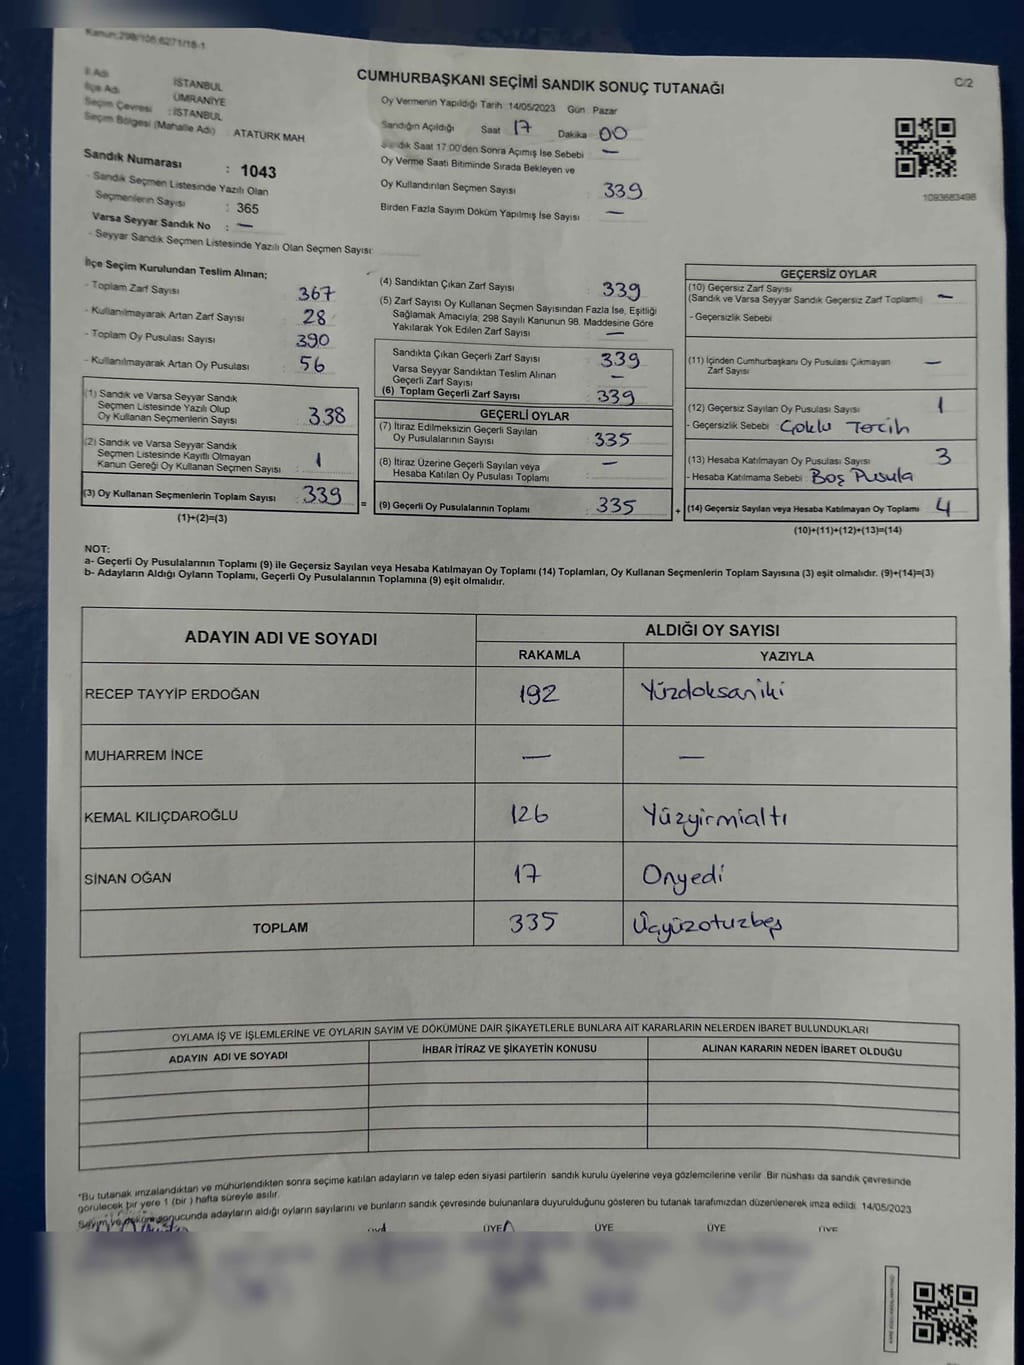 Kanun:298/106;6271/18-1
C/2
CUMHURBAŞKANI SEÇİMİ SANDIK SONUÇ TUTANAĞI
İl Adı İSTANBUL
İlçe Adı ÜMRANİYE
Seçim Çevresi : İSTANBUL
Seçim Bölgesi (Mahalle Adı) : ATATÜRK MAH
Sandık Numarası : 1043
- Sandık Seçmen Listesinde Yazılı Olan
Seçmenlerin Sayısı : 365
Varsa Seyyar Sandık No : —
- Seyyar Sandık Seçmen Listesinde Yazılı Olan Seçmen Sayısı:
Oy Vermenin Yapıldığı Tarih :14/05/2023 Gün : Pazar
Sandığın Açıldığı Saat 17 Dakika 00
Sandık Saat 17:00'den Sonra Açılmış İse Sebebi —
Oy Verme Saati Bitiminde Sırada Bekleyen ve
Oy Kullandırılan Seçmen Sayısı : 339
Birden Fazla Sayım Döküm Yapılmış İse Sayısı : —
1093683498
İlçe Seçim Kurulundan Teslim Alınan;
- Toplam Zarf Sayısı : 367
- Kullanılmayarak Artan Zarf Sayısı : 28
- Toplam Oy Pusulası Sayısı : 390
- Kullanılmayarak Artan Oy Pusulası : 56
(1) Sandık ve Varsa Seyyar Sandık
Seçmen Listesinde Yazılı Olup
Oy Kullanan Seçmenlerin Sayısı : 338
(2) Sandık ve Varsa Seyyar Sandık
Seçmen Listesinde Kayıtlı Olmayan
Kanun Gereği Oy Kullanan Seçmen Sayısı : 1
(3) Oy Kullanan Seçmenlerin Toplam Sayısı : 339 =
(1)+(2)=(3)
(4) Sandıktan Çıkan Zarf Sayısı : 339
(5) Zarf Sayısı Oy Kullanan Seçmen Sayısından Fazla İse, Eşitliği
Sağlamak Amacıyla; 298 Sayılı Kanunun 98. Maddesine Göre
Yakılarak Yok Edilen Zarf Sayısı : —
Sandıkta Çıkan Geçerli Zarf Sayısı : 339
Varsa Seyyar Sandıktan Teslim Alınan
Geçerli Zarf Sayısı : —
(6) Toplam Geçerli Zarf Sayısı : 339
GEÇERLİ OYLAR
(7) İtiraz Edilmeksizin Geçerli Sayılan
Oy Pusulalarının Sayısı : 335
(8) İtiraz Üzerine Geçerli Sayılan veya
Hesaba Katılan Oy Pusulası Toplamı : —
(9) Geçerli Oy Pusulalarının Toplamı : 335 +
GEÇERSİZ OYLAR
(10) Geçersiz Zarf Sayısı
(Sandık ve Varsa Seyyar Sandık Geçersiz Zarf Toplamı) —
- Geçersizlik Sebebi :
(11) İçinden Cumhurbaşkanı Oy Pusulası Çıkmayan
Zarf Sayısı : —
(12) Geçersiz Sayılan Oy Pusulası Sayısı : 1
- Geçersizlik Sebebi : Çoklu Tercih
(13) Hesaba Katılmayan Oy Pusulası Sayısı : 3
- Hesaba Katılmama Sebebi : Boş Pusula
(14) Geçersiz Sayılan veya Hesaba Katılmayan Oy Toplamı 4
(10)+(11)+(12)+(13)=(14)
NOT:
a- Geçerli Oy Pusulalarının Toplamı (9) ile Geçersiz Sayılan veya Hesaba Katılmayan Oy Toplamı (14) Toplamları, Oy Kullanan Seçmenlerin Toplam Sayısına (3) eşit olmalıdır. (9)+(14)=(3)
b- Adayların Aldığı Oyların Toplamı, Geçerli Oy Pusulalarının Toplamına (9) eşit olmalıdır.
ADAYIN ADI VE SOYADI ALDIĞI OY SAYISI
RAKAMLA YAZIYLA
RECEP TAYYİP ERDOĞAN 192 Yüzdoksaniki
MUHARREM İNCE — —
KEMAL KILIÇDAROĞLU 126 Yüzyirmialtı
SİNAN OĞAN 17 Onyedi
TOPLAM 335 Üçyüzotuzbeş
OYLAMA İŞ VE İŞLEMLERİNE VE OYLARIN SAYIM VE DÖKÜMÜNE DAİR ŞİKAYETLERLE BUNLARA AİT KARARLARIN NELERDEN İBARET BULUNDUKLARI
ADAYIN ADI VE SOYADI İHBAR İTİRAZ VE ŞİKAYETİN KONUSU ALINAN KARARIN NEDEN İBARET OLDUĞU
*Bu tutanak imzalandıktan ve mühürlendikten sonra seçime katılan adayların ve talep eden siyasi partilerin sandık kurulu üyelerine veya gözlemcilerine verilir. Bir nüshası da sandık çevresinde
görülecek bir yere 1 (bir ) hafta süreyle asılır.
Sayım ve döküm sonucunda adayların aldığı oyların sayılarını ve bunların sandık çevresinde bulunanlara duyurulduğunu gösteren bu tutanak tarafımızdan düzenlenerek imza edildi. 14/05/2023
ÜYE ÜYE ÜYE ÜYE